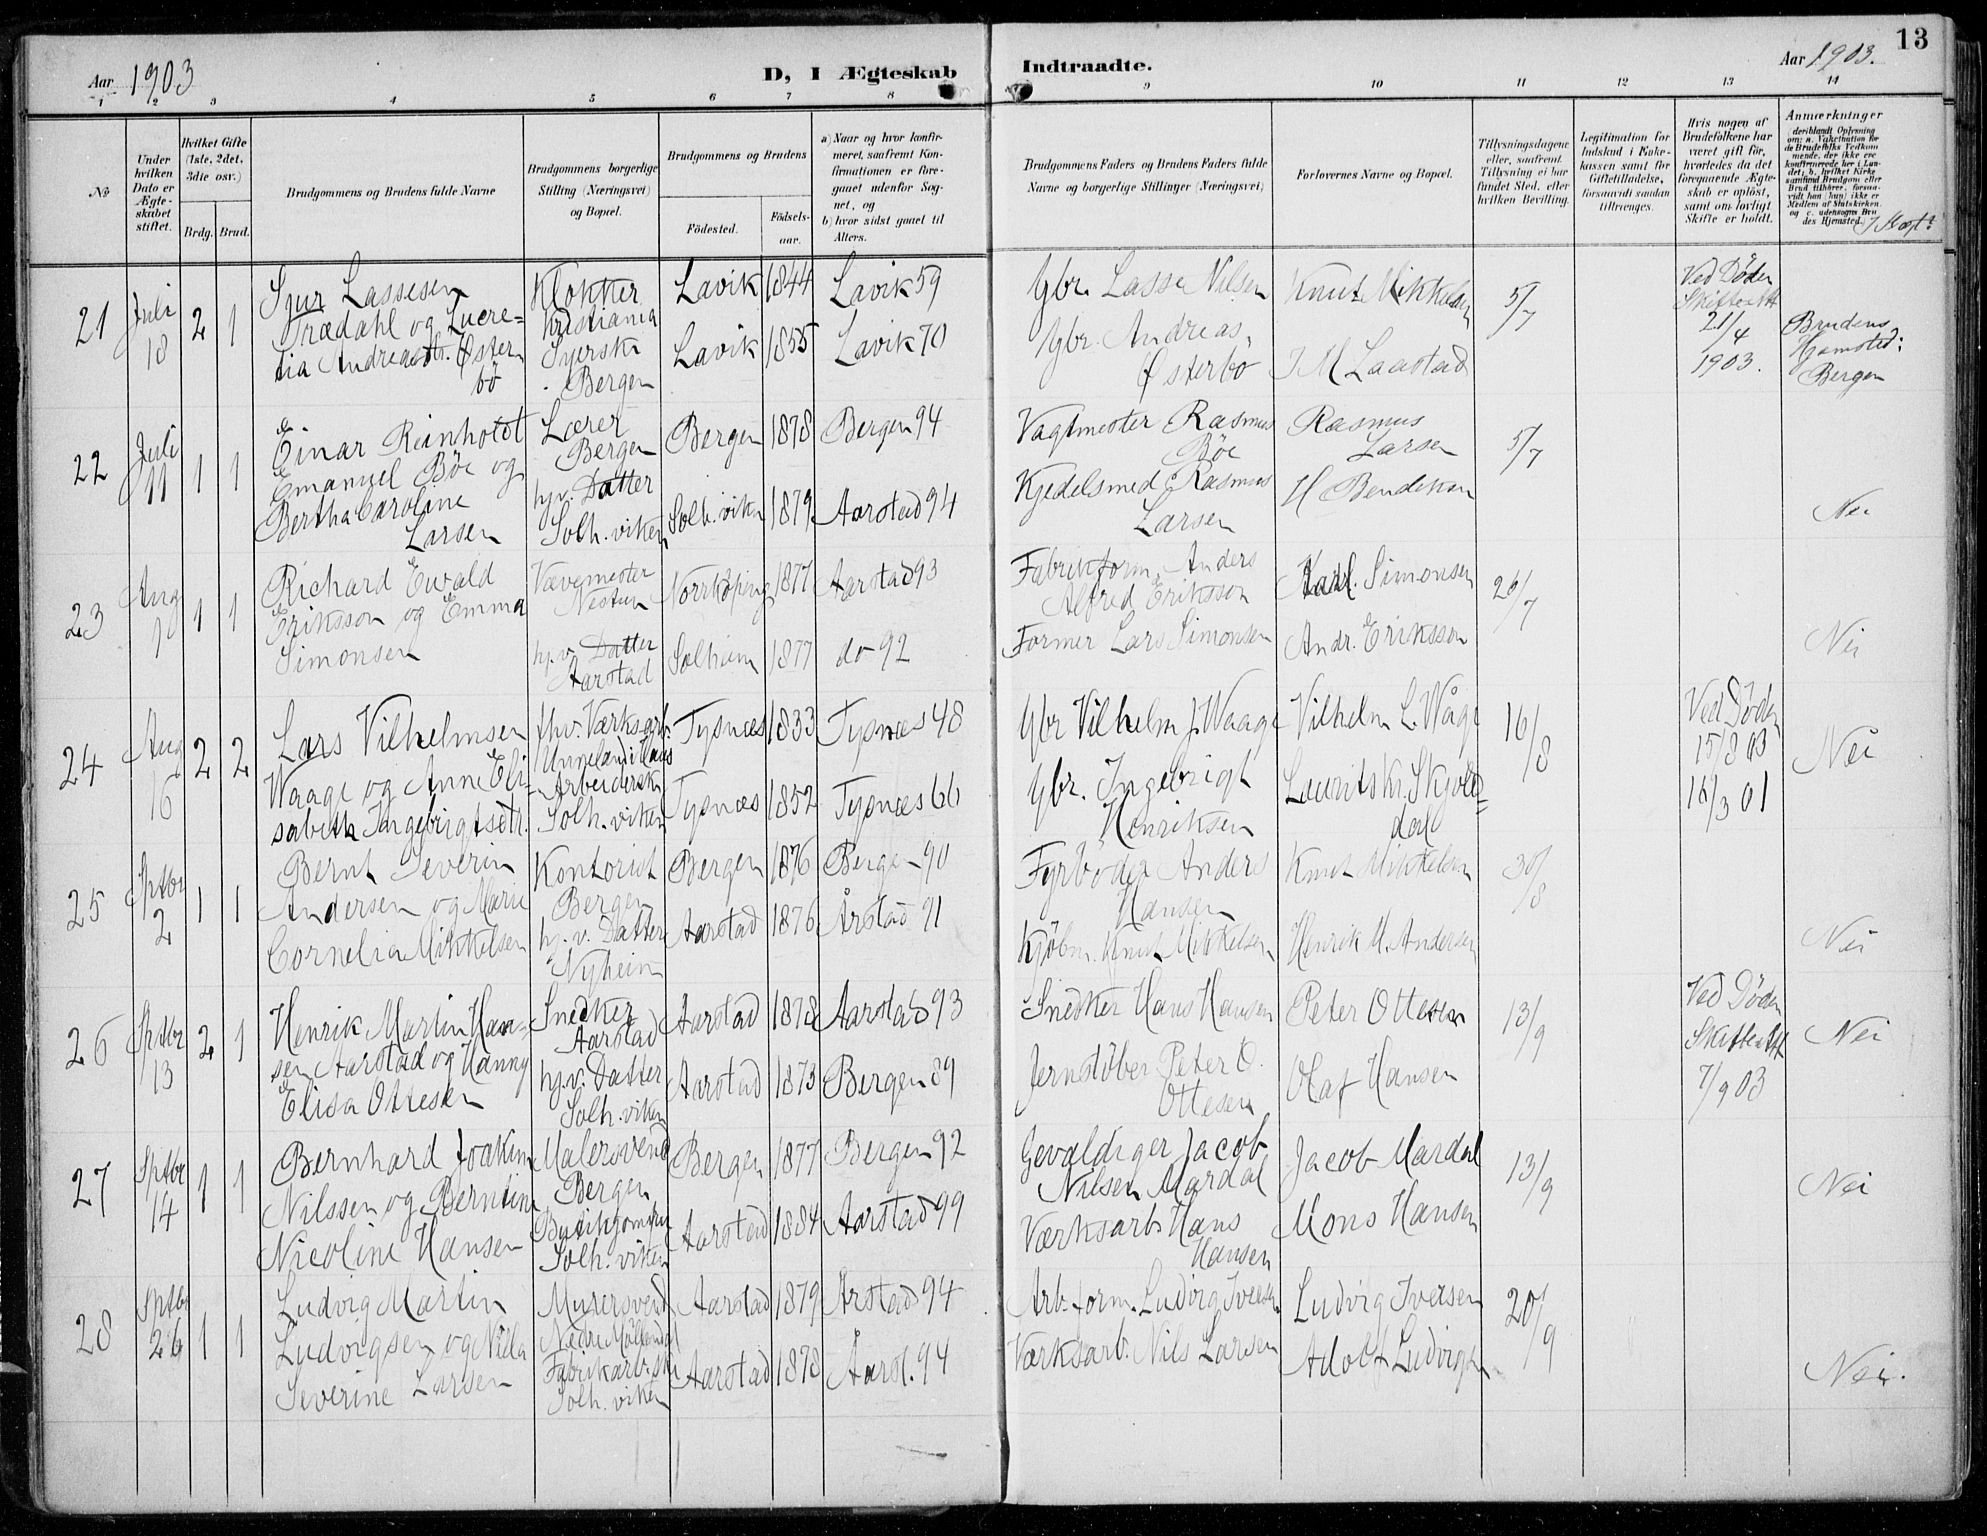 13
Aar 1903
D, I Ægteskab
Indtraadte.
Aar 1903.
1 2 3 4 5 6 7 8 9 10 11 12 13 14
No
Under hvilken Dato er Ægteskabet stiftet.
Hvilket Gifte (1ste, 2det, 3die osv.)
Brdg. Brud.
Brudgommens og Brudens fulde Navne
Brudgommens borgerlige Stilling (Næringsvei) og Bopæl.
Brudgommens og Brudens
Fødested.
Fødselsaar.
a) Naar og hvor konfirmeret, saafremt Konfirmationen er foregaaet udenfor Sognet, og
b) hvor sidst gaaet til Alters.
Brudgommens Faders og Brudens Faders fulde Navne og borgerlige Stillinger (Næringsvei)
Forlovernes Navne og Bopæl.
Tillysningsdagene eller, saafremt Tillysning ei har fundet Sted, efter hvilken Bevilling.
Legitimation for Indskud i Enkekassen samt for Giftetilladelse, forsaavidt saadan tiltrænges.
Hvis nogen af Brudefolkene har været gift før, hvorledes da det foregaaende Ægteskab er opløst, samt om lovligt Skifte er holdt.
Anmærkninger
21 Juli 18 2 1
Sjur Lassesen
Trædahl og Lucre=
tia Andreasdtr. Øster
bö
Klokker
Kristiania
Syersk
Bergen
Lavik 1844 Lavik 59
Lavik 1855 Lavik 70
Gbr. Lasse Nilsen
Gbr. Andreas
Østerbö
Knut Mikkelsen
J M Laastad
5/7
Ved Döden
Skifteatt
21/4
1903.
Brudens
Hjemsted:
Bergen
22 Juli 11 1 1
Einar Reinholdt
Emanuel Böe og
Bertha Caroline
Larsen
Lærer
Bergen
hj.v. Datter
Solh. viken
Bergen 1878 Bergen 94
Solh. viken 1879 Aarstad 94
Vagtmester Rasmus
Böe
Kjedelsmed Rasmus
Larsen
Rasmus
Larsen
H Bendiksen
5/7
Nei
23 Aug 1 1
Richard Ewald
Eriksson og Emma
Simonsen
Vævemester
Nestun
hj.v. Datter
Aarstad
Norrköping 1877 Aarstad 93
Solheim 1877 do 92
Fabrikform. Anders
Alfred Eriksson
Former Lars Simonsen
Karl. Simonsen
Andr. Eriksson
26/7
Nei
24 Aug 16 2 2
Lars Vilhelmsen
Waage og Anne Eli-
sabeth Ingebrigtsdtr.
fhv. Værksarb.
Unneland i Haus
Arbeidersk
Solh. viken
Tysnæs 1833 Tysnæs 48
Tysnæs 1852 Tysnæs 66
Gbr Vilhelm J. Waage
Gbr. Ingebrigt
Henriksen
Vilhelm L. Wåge
Laurits Kr. Skjold=
dal
16/8
Ved Döden
15/8 03
16/3 01
Nei
25 Sptbr 2 1 1
Bernt Severin
Andersen og Marie
Cornelia Mikkelsen
Kontorist
Bergen
hj. v. Datter
Nyheim
Bergen 1876 Bergen 90
Aarstad 1876 Årstad 91
Fyrböder Anders
Hansen
Kjöbm. Knut Mikkelsen
Knut Mikkelsen
Henrik M. Andersen
30/8
Nei
26 Sptbr 13 2 1
Henrik Martin Han-
sen Aarstad og Hanny
Elisa Ottesen
Snedker
Aarstad
hj.v. Datter
Solh. viken
Aarstad 1878 Aarstad 93
Aarstad 1873 Bergen 89
Snedker Hans Hansen
Jernstöber Peter O.
Ottesen
Peter Ottesen
Olaf Hansen
13/9
Ved Döden
Skifteatt
7/9 03
Nei
27 Sptbr 14 1 1
Bernhard Joakim
Nilssen og Berntine
Nicoline Hansen
Malersvend
Bergen
Butikjomfru
Solh. viken
Bergen 1877 Bergen 92
Aarstad 1884 Aarstad 99
Gevaldiger Jacob
Nilsen Mardal
Værksarb. Hans
Hansen
Jacob Mardal
Mons Hansen
13/9
Nei
28 Sptbr 26 1 1
Ludvig Martin
Ludvigsen og Nilla
Severine Larsen
Murersvend
Nedre Möllendal
Fabrikarb.ske
Solh. viken
Aarstad 1879 Årstad 94
Aarstad 1878 Aarst. 94
Arb.form. Ludvig Iversen
Værksarb. Nils Larsen
Ludvig Iversen
Adolf Ludvigsen
20/9
Nei.